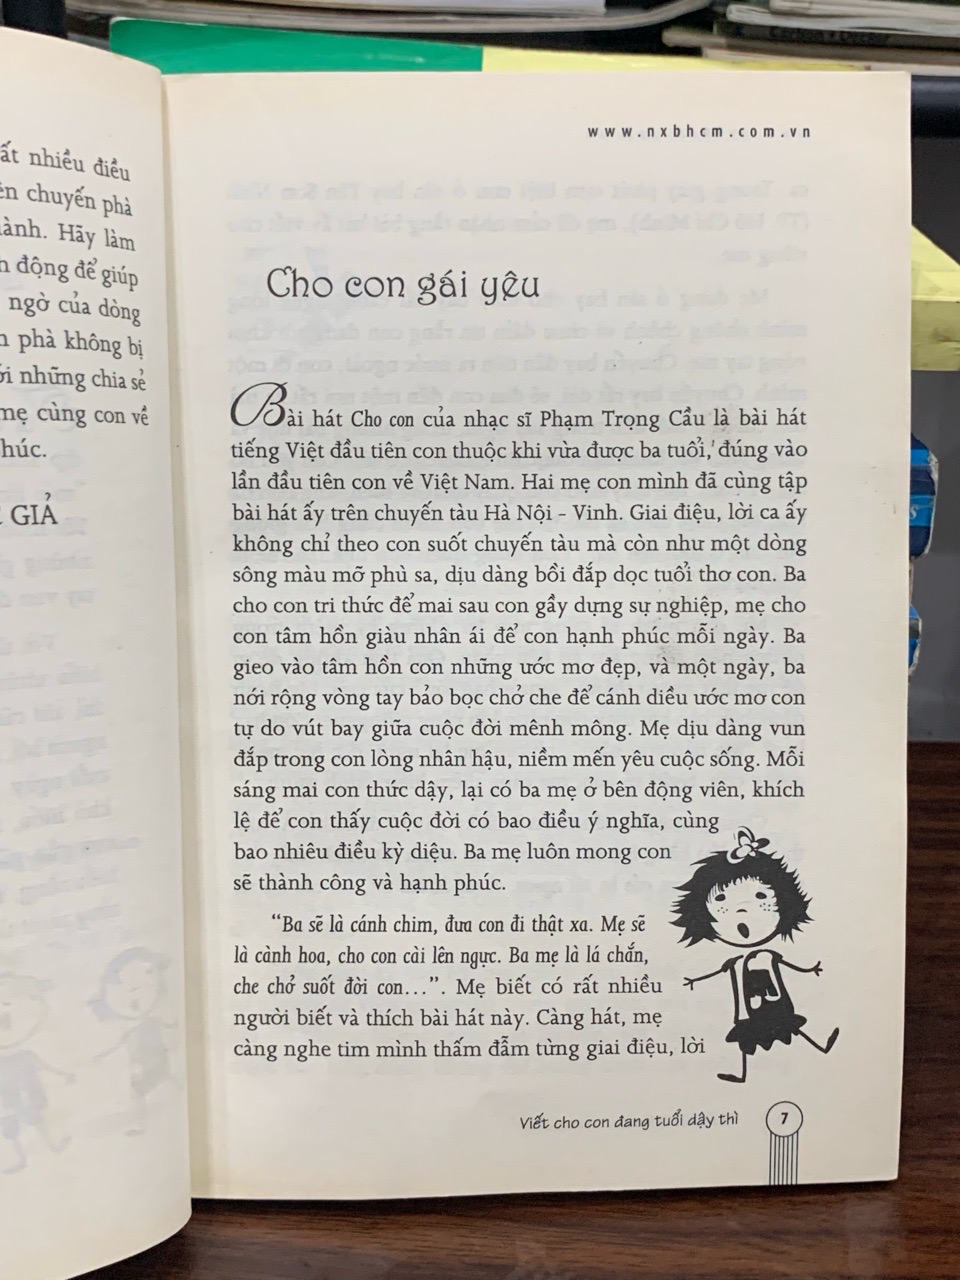 nhiều điều
chuyến phà
Hãy làm
động để giúp
ngờ của dòng
phà không bị
những chia sẻ
mẹ cùng con về
GIẢ
www.nxbhcm.com.vn
Cho con gái yêu
Bài hát Cho con của nhạc sĩ Phạm Trọng Cầu là bài hát
tiếng Việt đầu tiên con thuộc khi vừa được ba tuổi, đúng vào
lần đầu tiên con về Việt Nam. Hai mẹ con mình đã cùng tập
bài hát ấy trên chuyến tàu Hà Nội - Vinh. Giai điệu, lời ca ấy
không chỉ theo con suốt chuyến tàu mà còn như một dòng
sông màu mỡ phù sa, dịu dàng bồi đắp dọc tuổi thơ con. Ba
cho con tri thức để mai sau con gầy dựng sự nghiệp, mẹ cho
con tâm hồn giàu nhân ái để con hạnh phúc mỗi ngày. Ba
gieo vào tâm hồn con những ước mơ đẹp, và một ngày, ba
nới rộng vòng tay bảo bọc chở che để cánh diều ước mơ con
tự do vút bay giữa cuộc đời mênh mông. Mẹ dịu dàng vun
đắp trong con lòng nhân hậu, niềm mến yêu cuộc sống. Mỗi
sáng mai con thức dậy, lại có ba mẹ ở bên động viên, khích
lệ để con thấy cuộc đời có bao điều ý nghĩa, cùng
bao nhiêu điều kỳ diệu. Ba mẹ luôn mong con
sẽ thành công và hạnh phúc.
"Ba sẽ là cánh chim, đưa con đi thật xa. Mẹ sẽ
là cành hoa, cho con cài lên ngực. Ba mẹ là lá chắn,
che chở suốt đời con...". Mẹ biết có rất nhiều
người biết và thích bài hát này. Càng hát, mẹ
càng nghe tim mình thấm đẫm từng giai điệu, lời
Viết cho con đang tuổi dậy thì 7